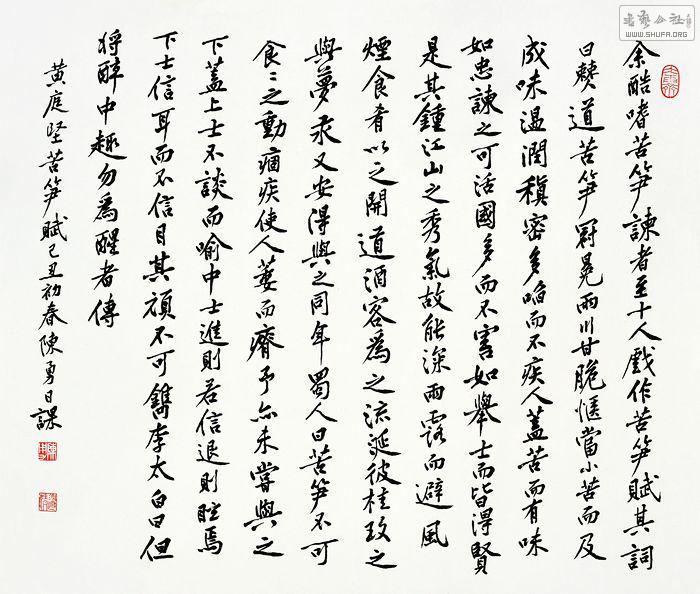 余酷嗜苦笋諫者至十人戲作苦笋賦其詞
曰僰道苦笋冠冕兩川甘脆愜當小苦而及
成味溫潤稹密多啗而不疾人蓋苦而有味
如忠諫之可活國多而不害如舉士而皆得賢
是其鍾江山之秀氣故能深雨露而避風
煙食肴以之開道酒客為之流涎彼桂玫之
與夢永又安得與之同年蜀人曰苦笋不可
食々之動痼疾使人萎而瘠予亦未嘗與之
下蓋上士不談而喻中士進則若信退則眩焉
下士信耳而不信目其頑不可鐫李太白曰但
得醉中趣勿為醒者傳
黃庭堅苦笋賦己丑初春陳勇日課
书法公社
WWW.SHUFA.ORG